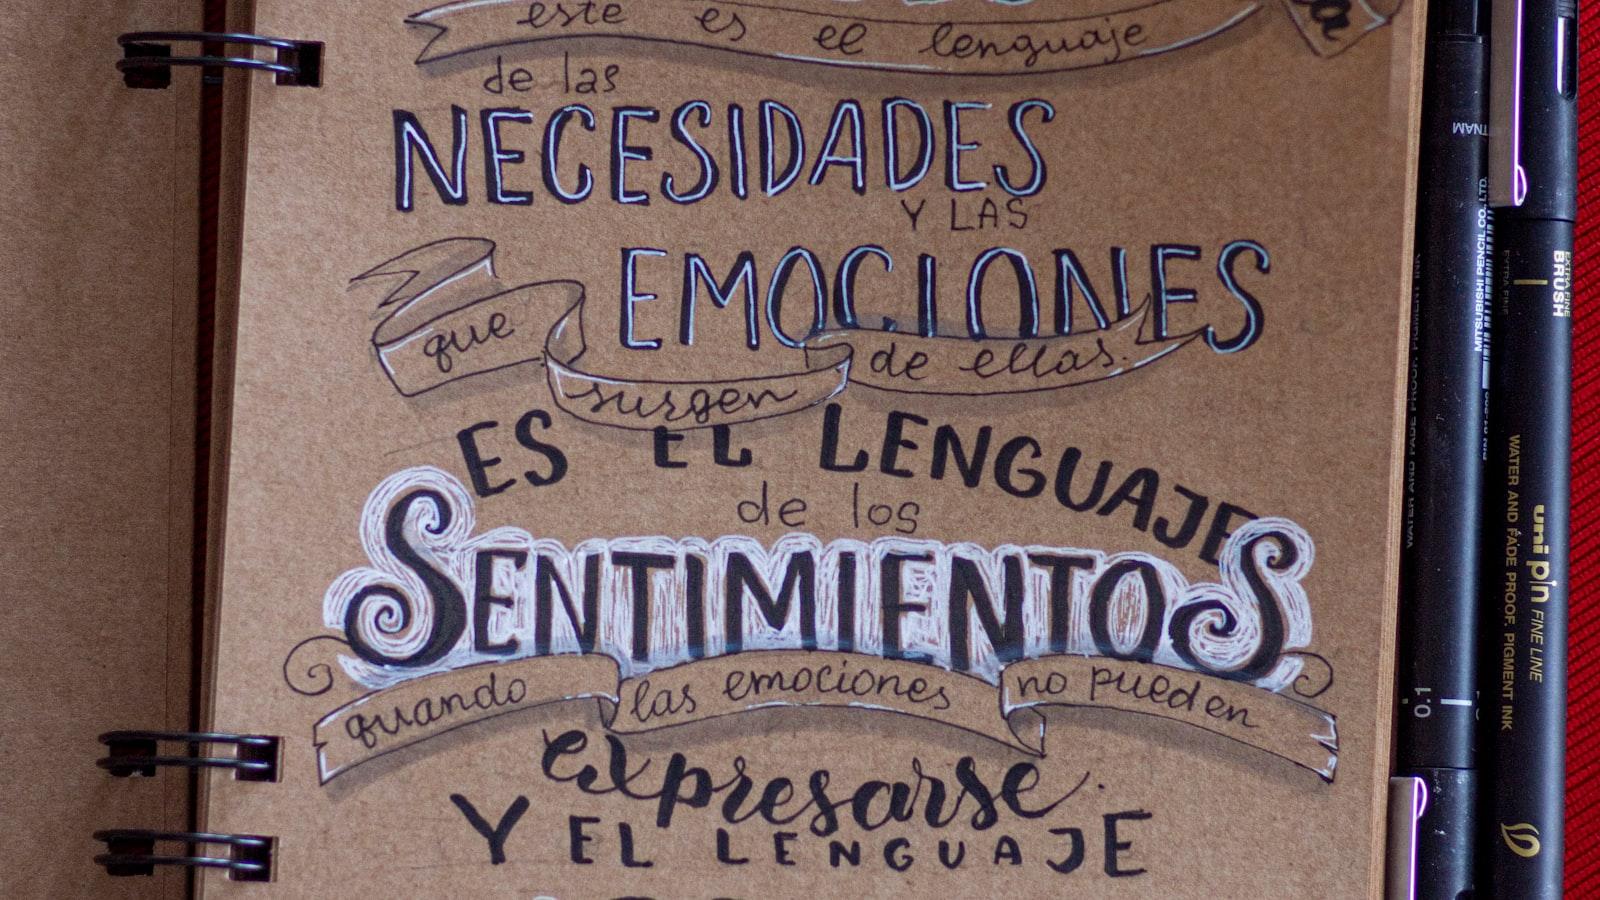 este es el lenguaje
de las
NECESIDADES
Y LAS
EMOCIONES
que surgen de ellas.
ES EL LENGUAJE
de los
SENTIMIENTOS
quando las emociones no pueden
expresarse.
Y EL LENGUAJE
TNAM
MITSUBISHI PENCIL CO., LTD.
WATER AND FADE PROOF, PIGMENT INK
0.1
EXTRA FINE
BRUSH
uni pin FINE LINE
WATER AND FADE PROOF, PIGMENT INK